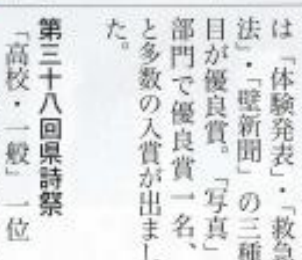 は「体験発表」・「救急
法」・「壁新聞」の三種
目が優良賞。「写真」
部門で優良賞一名、
と多数の入賞が出まし
た。
第三十八回県詩祭
「高校・一般」一位